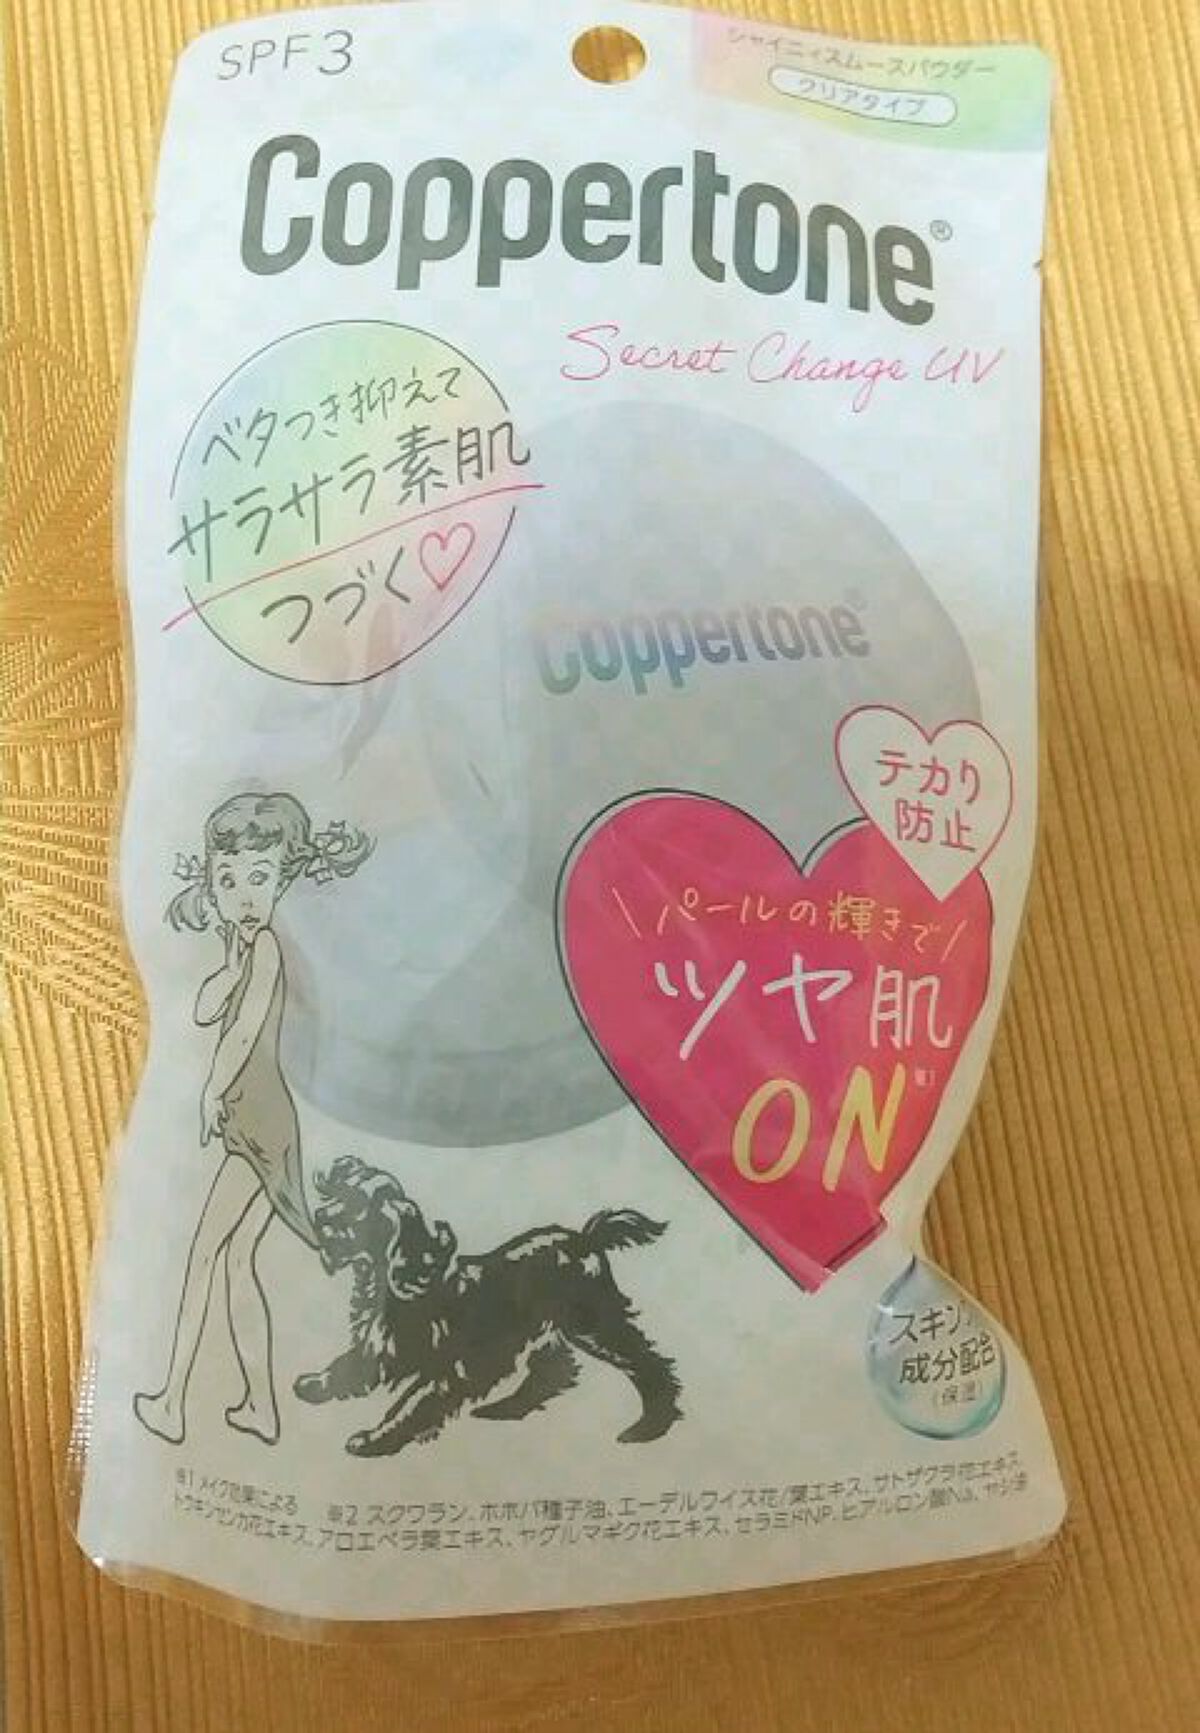 SPF3
シャイニィスムースパウダー
クリアタイプ
Coppertone®
Secret Change UV
ベタつき抑えて
サラサラ素肌
つづく♡
Coppertone®
テカり
防止
\パールの輝きで/
ツヤ肌
ON※1
スキン
成分配合
(保湿)
※1 メイク効果による ※2 スクワラン、ホホバ種子油、エーデルワイス花/葉エキス、サトザクラ花エキス、
トウキンセンカ花エキス、アロエベラ葉エキス、ヤグルマギク花エキス、セラミドNP、ヒアルロン酸Na、ヤシ油